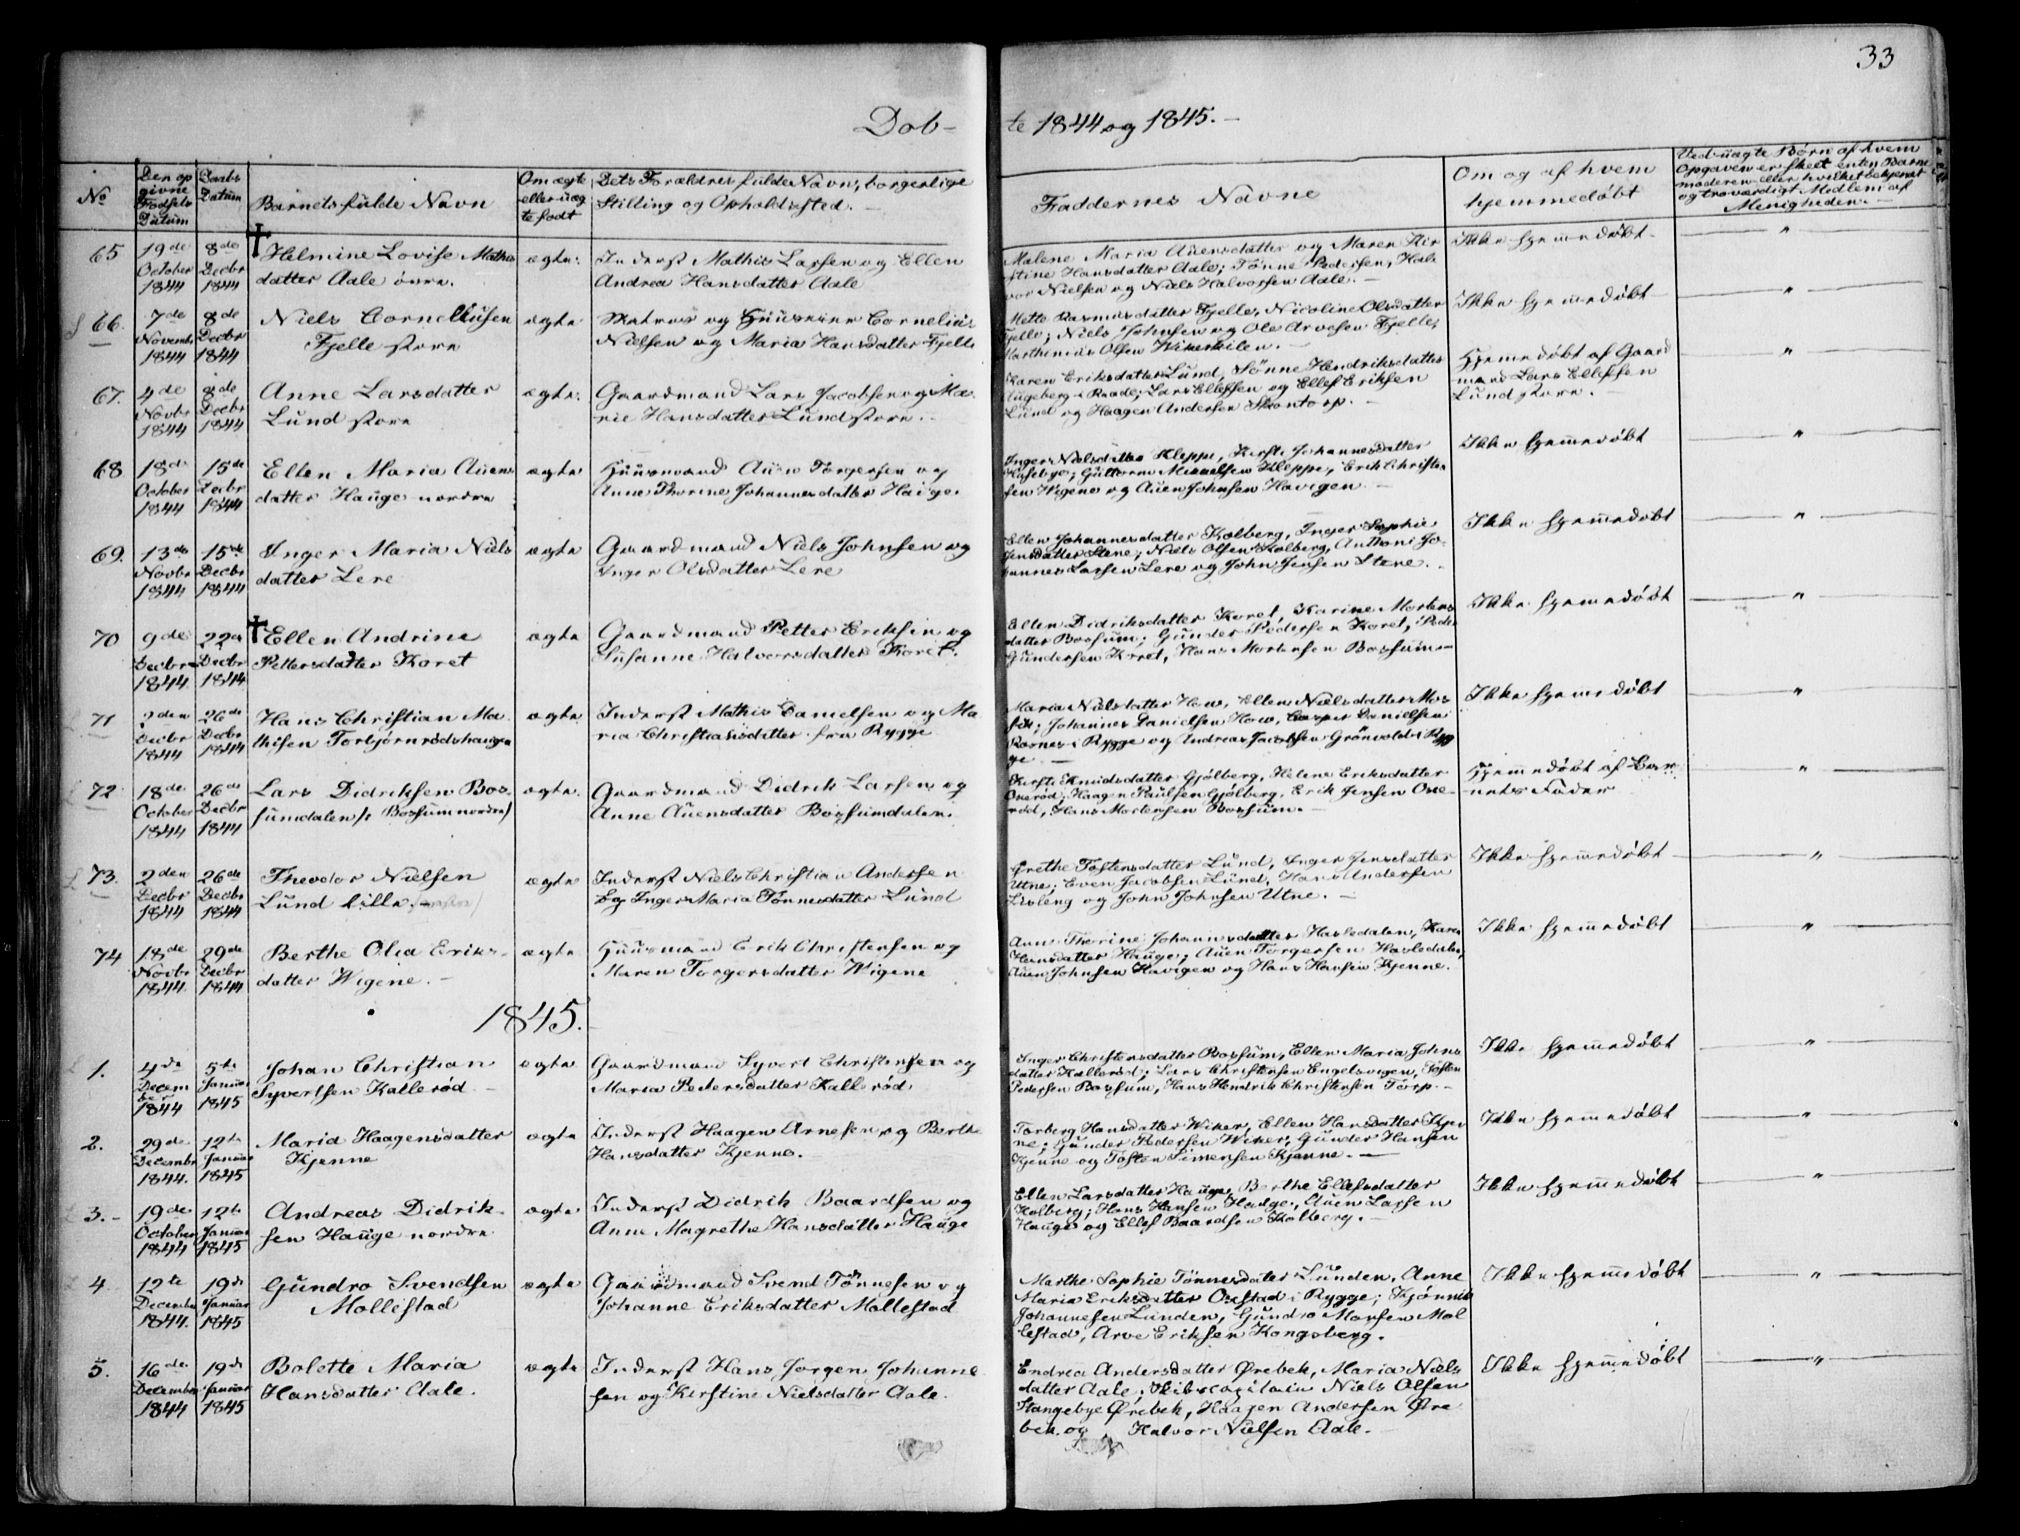 33
Døb-te 1844 og 1845.-
No
Den op
givne
Fødsels
Datum
Daabs
Datum
Barnets fulde Navn
Om ægte
eller uæg
te født
Dets Forældres fulde Navn, borgerlige
Stilling og Opholdssted.
Faddernes Navne
Om og af hvem
hjemmedøbt
Ved uægte Børn af hvem
Opgaven er skeet enten Barne
moderen eller hvilket bekjendt
og troværdigt Medlem af
Menigheden.
65
19de
October
1844
8de
Decbr
1844
Helmine Lovise Mathis
datter Aale øvre.
ægte.
Inderst Mathis Larsen og Ellen
Andrea Hansdatter Aale
Malene Maria Auensdatter og Maren Kir
stine Hansdatter Aale; Tønne Pedersen, Hal
vor Nielsen og Niels Halvorsen Aale.
Ikke hjemmedøbt
66.
7de
Novembr
1844
8de
Decbr
1844
Niels Corneliusen
Fjelle store
ægte
Matros og Huuseier Cornelius
Nielsen og Maria Hansdatter Fjelle
Mette Rasmusdatter Fjelle, Nicoline Olsdatter
Fjelle; Niels Johnsen og Ole Arvesen Fjelle,
Marthinius Olsen Wikerkilen.
Ikke hjemmedøbt
67.
4de
Novbr
1844
8de
Decbr
1844
Anne Larsdatter
Lund store
ægte.
Gaardmand Lars Jacobsen og Ma-
rie Hansdatter Lund store.
Karen Eriksdatter Lund, Tønne Hendriksdatter
Augeberg i Raade; Lars Ellefsen og Ellef Eriksen
Lund og Haagen Andersen Skontorp.
Hjemmedøbt af Gaard
mand Lars Ellefsen
Lund store.
68
18de
October
1844
15de
Decbr
1844
Ellen Maria Auens
datter Hauge nordre
ægte
Huusmand Auen Torgersen og
Anne Thorine Johannesdatter Hauge.
Inger Nielsdatter Kleppe, Kirsti Johannesdatter
Husebye; Guttorm Mikkelsen Kleppe, Erik Christen
sen Wigene og Auen Johnsen Havigen
Ikke hjemmedøbt
69.
13de
Novbr
1844
15de
Decbr
1844
Inger Maria Niels
datter Lere
ægte
Gaardmand Niels Johnsen og
Inger Olsdatter Lere
Ellen Johannesdatter Kolberg, Inger Sophie
Jensdatter Stene; Niels Olsen Kolberg, Anthoni Jo-
hannes Larsen Lere og John Jensen Stene.
Ikke hjemmedøbt
70
9de
Decbr
1844.
22de
Decbr
1844
Ellen Andrine
Pettersdatter Koret
ægte
Gaardmand Petter Eriksen og
Susanne Halvorsdatter Koret.
Ellen Didriksdatter Koret, Karine Mortens
datter Bossum; Gunder Pedersen Koret, Peder
Gundersen Koret, Hans Mortensen Bossum
Ikke hjemmedøbt
71
2den
Decbr
1844
26de
Decbr
1844
Hans Christian Ma
thisen Torbjørnrødshaugen
ægte
Inderst Mathis Danielsen og Ma
ria Christiansdatter fra Rygge
Maria Nielsdatter How, Ellen Nielsdatter Mos
sik; Johannes Danielsen How, Casper Danielsen
Roones i Rygge og Andreas Jacobsen Grønvold i Ryg
ge
Ikke hjemmedøbt
72
18de
October
1844
26de
Decbr
1844
Lars Didriksen Bos-
sumdalen /: Bossum nordre/
ægte
Gaardmand Didrik Larsen og
Anne Auensdatter Bossumdalen.
Kirsti Knudsdatter Gjølberg, Helene Eriksdatter
Overød; Haagen Paulsen Gjølberg, Erik Jensen Ove-
rød, Hans Mortensen Bossum.
Hjemmedøbt af Bar
nets Fader
73.
2den
Decbr
1844
26de
Decbr
1844
Theodor Nielsen
Lund lille.-
ægte
Inderst Niels Christian Andersen
og Inger Maria Tønnesdatter Lund
Grethe Tostensdatter Lund, Inger Jensdatter
Utne; Even Jacobsen Lund, Hans Andersen
Lisleng og John Johnsen Utne.
Ikke hjemmedøbt
74
18de
Novbr
1844.
29de
Decbr
1844
Berthe Olea Eriks-
datter Wigene.-
ægte
Huusmand Erik Christensen og
Maren Torgersdatter Wigene
Anne Thorine Johannesdatter Hasledalen, Karen
Hansdatter Hauge; Auen Torgersen Hasledalen,
Auen Johnsen Havigen og Hans Hansen Kjenne.
Ikke hjemmedøbt
1845.
1.
4de
Decem
ber
1844
5te
Januar
1845
Johan Christian
Syvertsen Kallerød
ægte
Gaardmand Syvert Christensen og
Maria Pedersdatter Kallerød
Inger Christensdatter Bossum, Ellen Maria Johns
datter Kallerød; Lars Christensen Engelsvigen, Tosten
Pedersen Bossum, Hans Hendrik Christensen Torp.
Ikke hjemmedøbt
2.
29de
Decembr
1844.
12te
Januar
1845
Maria Haagensdatter
Kjenne
ægte
Inderst Haagen Arnesen og Berthe
Hansdatter Kjenne.
Torberg Hansdatter Wiker, Ellen Hansdatter Kjen
ne; Gunder Pedersen Wiker, Gunder Hansen
Kjenne og Tosten Simensen Kjenne.
Ikke hjemmedøbt
3.
19de
October
1844
12te
Januar
1845
Andreas Didrik-
sen Hauge nordre
ægte
Inderst Didrik Baardsen og
Anne Magrethe Hansdatter Hauge
Ellen Larsdatter Hauge, Berthe Ellefsdatter
Kolberg; Hans Hansen Hauge, Auen Larsen
Hauge og Ellef Baardsen Kolberg.
Ikke hjemmedøbt
4
12te
December
1844.
19de
Januar
1845
Gundro Svendsen
Mollestad
ægte
Gaardmand Svend Tønnesen og
Johanne Eriksdatter Mollestad
Marthe Sophie Tønnesdatter Lunden, Anne
Maria Eriksdatter Oxstad i Rygge; Kjønnik
Johannesen Lunden, Gundro Monsen Mol
lestad, Arve Eriksen Kongsberg.
Ikke hjemmedøbt
5.
16de
December
1844
19de
Januar
1845
Bolette Maria
Hansdatter Aale.
ægte
Inderst Hans Jørgen Johanne
sen og Kirstine Nielsdatter Aale.
Endrea Andersdatter Ørebek, Maria Niels
datter Aale; Skibscapitain Niels Olsen
Stangebye Ørebek, Haagen Andersen Øre
bek og Halvor Nielsen Aale.
Ikke hjemmedøbt